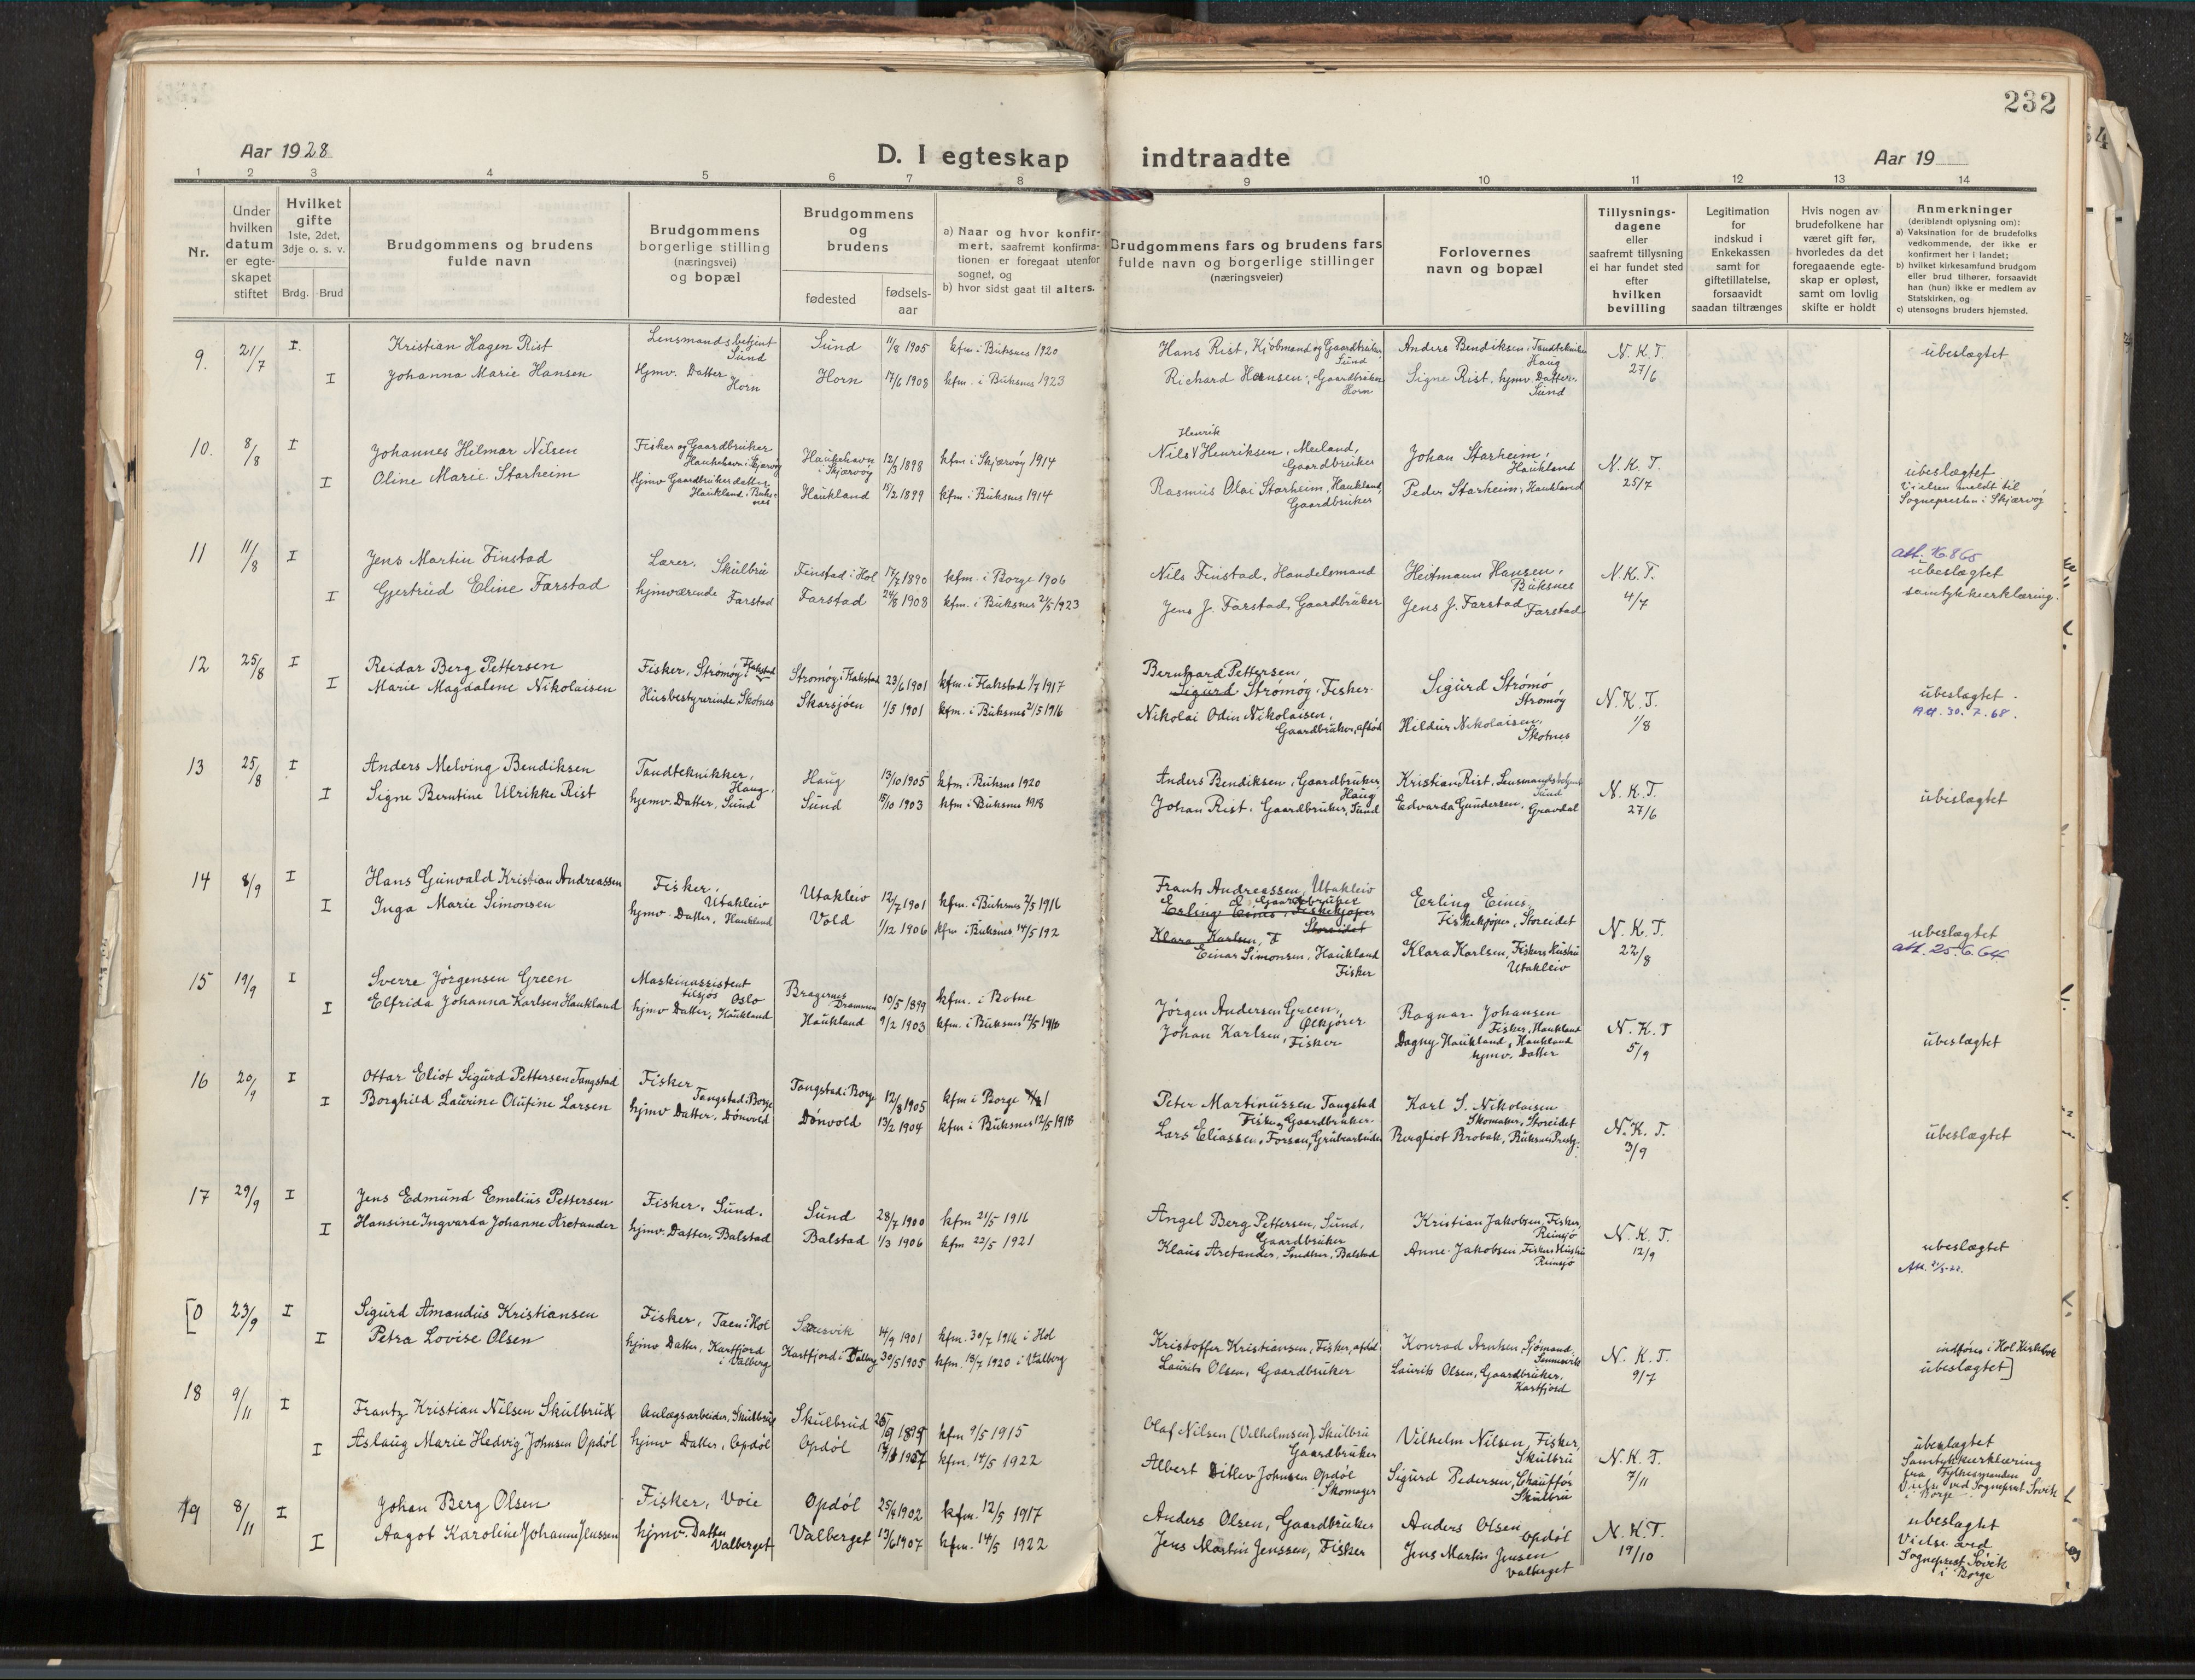 232
Aar 1928
D. I egteskap indtraadte
Aar 19
1 2 3 4 5 6 7 8 9 10 11 12 13 14
Nr.
Under hvilken datum er egteskapet stiftet
Hvilket gifte 1ste, 2det, 3dje o. s. v.
Brdg. Brud
Brudgommens og brudens fulde navn
Brudgommens borgerlige stilling (næringsvei) og bopæl
Brudgommens og brudens
fødested
fødsels-aar
a) Naar og hvor konfirmert, saafremt konfirmationen er foregaat utenfor sognet, og
b) hvor sidst gaat til alters.
Brudgommens fars og brudens fars fulde navn og borgerlige stillinger (næringsveier)
Forlovernes navn og bopæl
Tillysnings-dagene eller saafremt tillysning ei har fundet sted efter hvilken bevilling
Legitimation for indskud i Enkekassen samt for giftetillatelse, forsaavidt saadan tiltrænges
Hvis nogen av brudefolkene har været gift før, hvorledes da det foregaaende egteskap er opløst, samt om lovlig skifte er holdt
Anmerkninger (deriblandt oplysning om):
a) Vaksination for de brudefolks vedkommende, der ikke er konfirmert her i landet;
b) hvilket kirkesamfund brudgom eller brud tilhører, forsaavidt han (hun) ikke er medlem av Statskirken, og
c) utensogns bruders hjemsted.
9. 21/7 I. Kristian Hagen Rist Lensmandsbetjent Sund Sund 11/8 1905 kfm i Buksnes 1920 Hans Rist, Kjøbmand og Gaardbruker Sund Anders Bendiksen, Tandtekniker Haug N. K. T. 27/6 ubeslægtet
I Johanna Marie Hansen Hjmv. Datter Horn Horn 17/6 1908 kfm. i Buksnes 1923 Richard Hansen, Gaardbruker Horn Signe Rist, hjmv. Datter, Sund
10. 8/8 I Johannes Hilmar Nilsen Fisker og Gaardbruker Haukehavn i Skjærvøy Haukehavn i Skjærvøy 12/3 1898 kfm i Skjærvøy 1914 Nils Henrik Henriksen, Meiland, Gaardbruker Johan Starheim, Haukland N. K. T. 25/7 ubeslægtet
I Oline Marie Starheim Hjmv Gaardbrukerdatter Haukland, Buksnes Haukland 15/2 1899 kfm. i Buksnes 1914 Rasmus Olai Starheim, Haukland, Gaardbruker Peder Starheim, Haukland Vielsen meldt til Sognepresten i Skjærvøy
11 11/8 I Jens Martin Finstad Lærer, Skulbru Finstad i Hol 17/7 1890 kfm. i Borge 1906 Nils Finstad, Handelsmand Heitmann Hansen, Buksnes N. K. T. 4/7 ubeslægtet
I Gjertrud Eline Farstad hjmværende Farstad Farstad 24/8 1908 kfm. i Buksnes 21/5 1923 Jens J. Farstad, Gaardbruker Jens J. Farstad Farstad samtykkeerklæring.
12 25/8 I Reidar Berg Pettersen Fisker, Strømøy i Flakstad Strømøy i Flakstad 23/6 1901 kfm. i Flakstad 1/7 1917 Bernhard Pettersen, Sigurd Strømøy, Fisker. Sigurd Strømø Strømøy N. K. T. 1/8 ubeslægtet.
I Marie Magdalene Nikolaisen Husbestyrerinde, Skotnes Skarsjøen 1/5 1901 kfm. i Buksnes 21/5 1916 Nikolai Odin Nikolaisen, Gaardbruker, afdød Hildur Nikolaisen, Skotnes Att. 30. 7. 68.
13 25/8 I Anders Melving Bendiksen Tandteknikker, Haug, Haug 13/10 1905 kfm. i Buksnes 1920 Anders Bendiksen, Gaardbruker, Haug Kristian Rist, Lensmandsbetjent Sund N. K. T. 27/6 ubeslægtet
I Signe Berntine Ulrikke Rist hjemv. Datter, Sund Sund 15/10 1903 kfm. i Buksnes 1918 Johan Rist, Gaardbruker, Sund Edvarda Gundersen, Gravdal
14 8/9 I Hans Gunvald Kristian Andreassen Fisker, Utakleiv Utakleiv 12/7 1901 kfm. i Buksnes 21/5 1916 Frants Andreassen, Utakleiv Gaardbruker Erling Eines, Fiskekjøper Storeidet Erling Eines, Fiskekjøper, Storeidet N. K. T. 22/8 ubeslægtet
I Inga Marie Simonsen hjmv. Datter, Haukland Vold 1/12 1906 kfm i Buksnes 14/5 192 Klara Karlsen, F Einar Simonsen, Haukland Fisker Klara Karlsen, Fiskers Hustru Utakleiv att. 25. 6. 64.
15 19/9 I Sverre Jørgensen Green Maskinassistent tilsjøs Oslo Bragernes Drammen 10/5 1899 kfm. i Botne Jørgen Andersen Green, Ølkjører Ragnar Johansen Fisker, Haukland N. K. T 5/9 ubeslægtet
I Elfrida Johanna Karlsen Haukland hjmv Datter, Haukland Haukland 9/2 1903 kfm. i Buksnes 12/5 1918 Johan Karlsen, Fisker Dagny Haukland, Haukland hjmv. Datter
16 20/9 I Ottar Eliot Sigurd Pettersen Tangstad Fisker Tangstad i Borge Tangstad i Borge 12/8 1905 kfm i Borge Peter Martinussen Tangstad Fisker, Gaardbruker. Karl S. Nikolaisen Skomaker, Storeidet N. K. T. 3/9 ubeslægtet
I Borghild Laurine Olufine Larsen hjmv Datter, Dønvold Dønvold 13/2 1904 kfm i Buksnes 12/5 1918 Lars Eliassen, Forsøn, Grubearbeider Bergliot Brobak, Buksnes Prestg.
17 29/9 I Jens Edmund Emelius Pettersen Fisker, Sund. Sund 28/7 1900 kfm 21/5 1916 Angel Berg Pettersen, Sund, Gaardbruker Kristian Jakobsen, Fisker, Reinsjø N. K. T. 12/9 ubeslægtet
I Hansine Ingvarda Johanne Aretander hjmv. Datter, Balstad Balstad 1/3 1906 kfm 22/5 1921 Klaus Aretander, Snedker, Balstad Anne Jakobsen, Fiskers Hustru Reinsjø
[0 23/9 I Sigurd Amandus Kristiansen Fisker, Taen i Hol 14/9 1901 kfm. 30/7 1916 i Hol Kristoffer Kristiansen, Fisker, afdød. Konrad Arntsen, Sjømand, N. K. T. 9/7 indføres i Hol Kirkebok
I Petra Lovise Olsen hjmv Datter, Kartfjord i Valberg Kartfjord i Valberg 30/5 1905 kfm. 18/7 1920 i Valberg Laurits Olsen, Gaardbruker Laurits Olsen, Gaardbruker, Kartfjord ubeslægtet]
18 9/11 I Frantz Kristian Nilsen Skulbrud Anlægsarbeider, Skulbru Skulbrud kfm 9/5 1915 Olaf Nilsen (Vilhelmsen), Skulbru Gaardbruker Vilhelm Nilsen, Fisker, Skulbru N. K. T. 7/11 ubeslægtet
I Aslaug Marie Hedvig Johnsen Opdøl hjmv Datter, Opdøl Opdøl 1907 kfm. 14/5 1922 Albert Ditlev Johnsen Opdøl Skomager Sigurd Pedersen, Chauffør Skulbru Samtykkeerklæring fra Fylkesmanden Vielse ved Sogneprest Søvik i Borge
19 8/11 I Johan Berg Olsen Fisker, Voie Opdøl 25/4 1902 kfm. 12/5 1917 Anders Olsen, Gaardbruker Anders Olsen Opdøl N. K. T. 19/10 ubeslægtet
I Aagot Karoline Johanne Jenssen hjmv. Datter Valberget Valberget 13/6 1907 kfm. 14/5 1922 Jens Martin Jenssen, Fisker Jens Martin Jensen Valberget Vielse ved Sogneprest Søvik i Borge